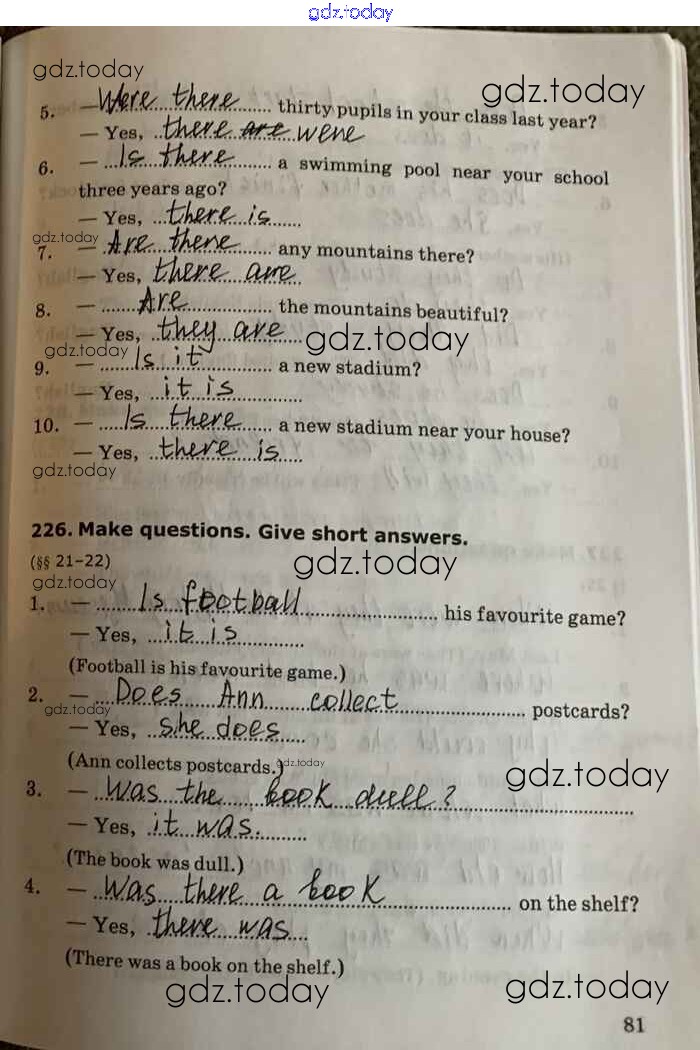 gdz.today
gdz.today
gdz.today
5. – Were there ...... thirty pupils in your class last year?
– Yes, there are were
6. – Is there ...... a swimming pool near your school
three years ago?
– Yes, there is
gdz.today
7. – Are there ...... any mountains there?
– Yes, there are
8. – Are ...... the mountains beautiful?
– Yes, they are
gdz.today
gdz.today
9. – Is it ...... a new stadium?
– Yes, it is
10. – Is there ...... a new stadium near your house?
– Yes, there is
gdz.today
226. Make questions. Give short answers.
(§§ 21–22)
gdz.today
gdz.today
1. – Is football ...... his favourite game?
– Yes, it is
(Football is his favourite game.)
2. – Does Ann collect ...... postcards?
gdz.today
– Yes, she does
(Ann collects postcards.)
gdz.today
gdz.today
3. – Was the book dull?
– Yes, it was.
(The book was dull.)
4. – Was there a book ...... on the shelf?
– Yes, there was
(There was a book on the shelf.)
gdz.today
gdz.today
81